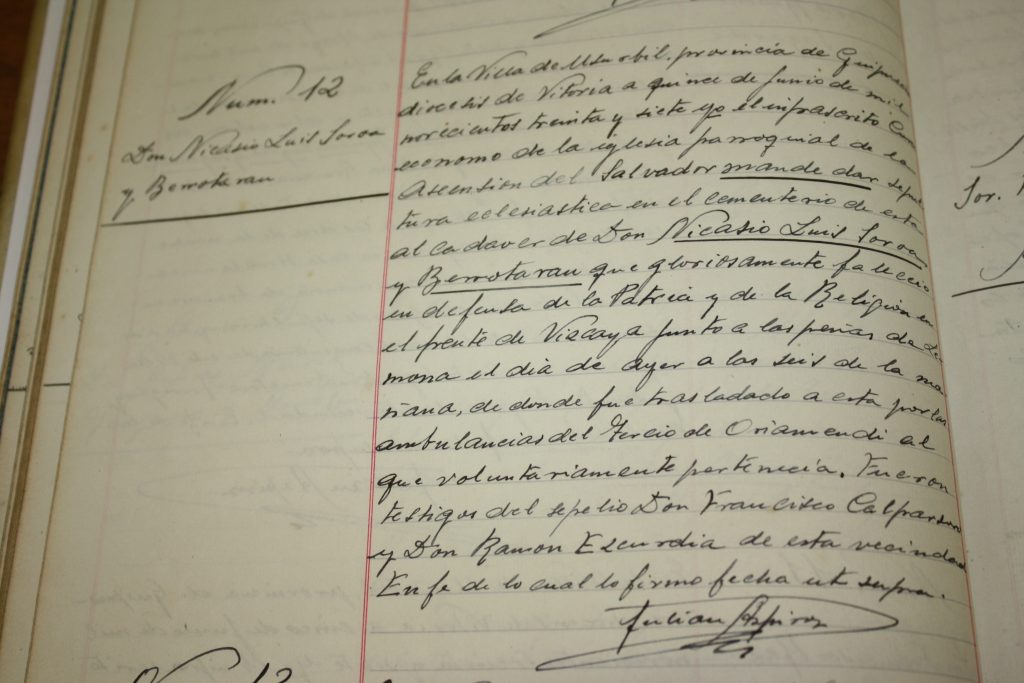 Num. 12
Don Nicasio Luis Soroa
y Berrotaran
En la Villa de Usurbil, provincia de Guipuzcoa
diocesis de Vitoria a quince de Junio de mil
novicientos treinta y siete yo el infrascrito Cura
economo de la iglesia parroquial de la
Ascension del Salvador mande dar sepul
tura eclesiastica en el cementerio de esta
al cadaver de Don Nicasio Luis Soroa
y Berrotaran que gloriosamente fallecio
en defensa de la Patria y de la Religion en
el frente de Vizcaya junto a las peñas de Le
mona el dia de ayer a las seis de la ma
ñana, de donde fue trasladado a esta por las
ambulancias del Tercio de Oriamendi al
que voluntariamente pertenecia. Fueron
testigos del sepelio Don Francisco Calparsoro
y Don Ramon Ezcurdia de esta vecindad
En fe de lo cual lo firmo fecha ut supra.
Julian Azpiroz
Sor.
Num. 13